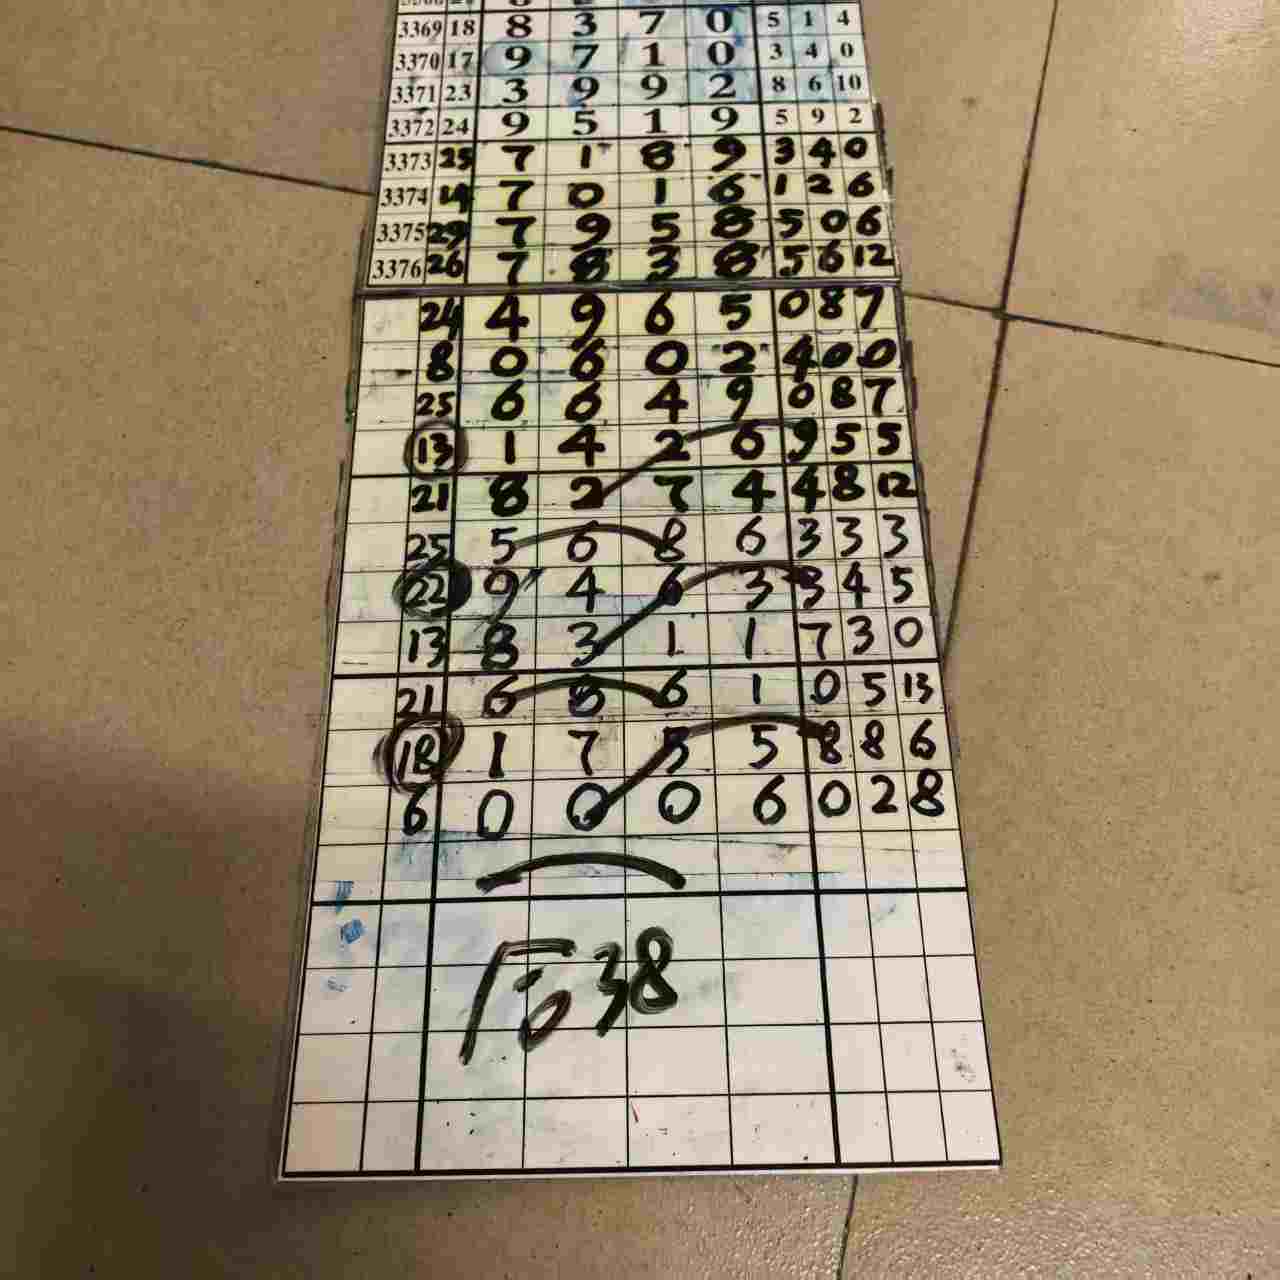 3369 18 8 3 7 0 5 1 4
3370 17 9 7 1 0 3 4 0
3371 23 3 9 9 2 8 6 10
3372 24 9 5 1 9 5 9 2
3373 25 7 1 8 9 3 4 0
3374 14 7 0 1 6 1 2 6
3375 29 7 9 5 8 5 0 6
3376 26 7 8 3 8 5 6 12
24 4 9 6 5 0 8 7
8 0 6 0 2 4 0 0
25 6 6 4 9 0 8 7
13 1 4 2 6 9 5 5
21 8 2 7 4 4 8 12
25 5 6 8 6 3 3 3
22 9 4 6 3 3 4 5
13 8 3 1 1 7 3 0
21 6 8 6 1 0 5 13
18 1 7 5 5 8 8 6
6 0 0 0 6 0 2 8
38